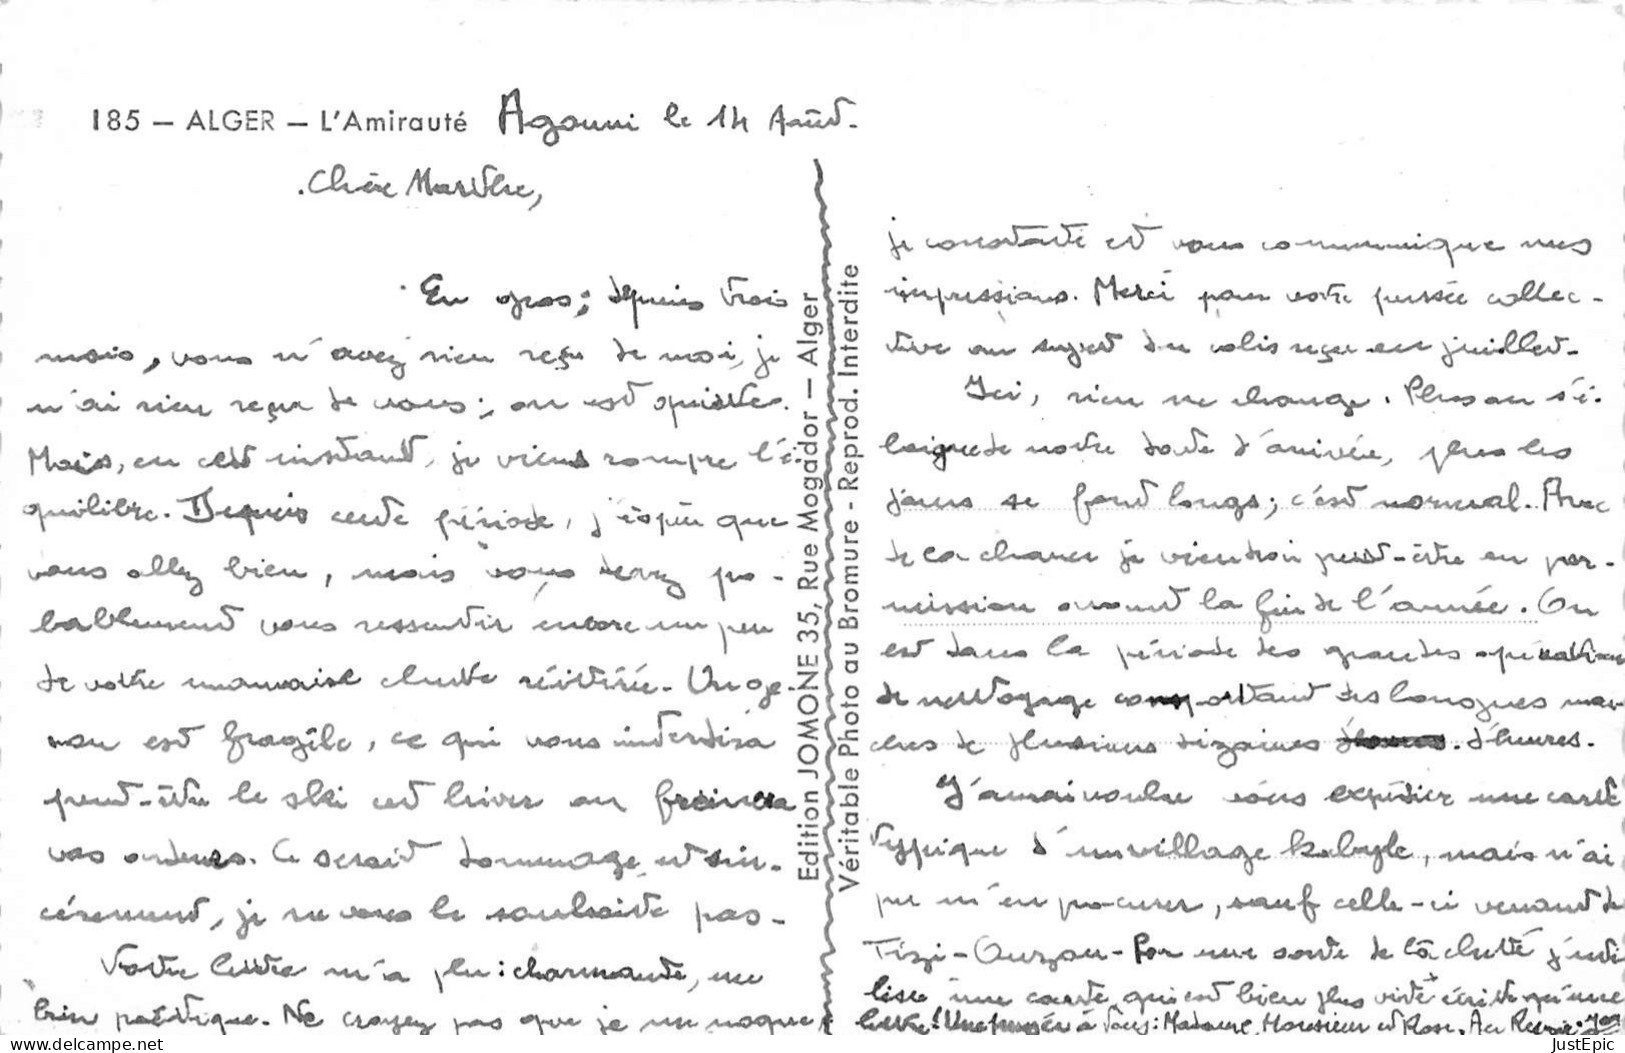 185 — ALGER — L'Amirauté Agouni le 14 Août.
Chère Marthe,
En gros; depuis trois
mois, vous n'avez rien reçu de moi, je
n'ai rien reçu de vous; on est quittes.
Mais, en cet instant, je viens rompre l'é-
quilibre. Depuis cette période, j'espère que
vous allez bien, mais vous devez pro-
bablement vous ressentir encore un peu
de votre mauvaise chute réitérée. Un ge-
nou est fragile, ce qui vous interdira
peut-être le ski cet hiver ou freinera
vos ardeurs. Ce serait dommage et sin-
cèrement, je ne vous le souhaite pas-
Votre lettre m'a plu: charmante, un
brin poétique. Ne croyez pas que je me moque;
Edition JOMONE 35, Rue Mogador — Alger
Véritable Photo au Bromure - Reprod. Interdite
je constate et vous communique mes
impressions. Merci pour votre pensée collec-
tive au sujet du colis reçu en juillet-
Ici, rien ne change. Plus on s'é-
loigne de notre date d'arrivée, plus les
jours se font longs; c'est normal. Avec
de la chance je viendrai peut-être en per-
mission avant la fin de l'année. On
est dans la période des grandes opérations
de nettoyage comportant des longues mar-
ches de plusieurs dizaines d'heures.
J'aurai voulu vous expédier une carte
typique d'un village kabyle, mais n'ai
pu m'en procurer, sauf celle-ci venant de
Tizi-Ouzou- Par une sorte de lâcheté j'uti
lise une carte qui est bien plus vite écrite qu'une
lettre! Une pensée à tous: Madame, Monsieur et Rose. Au Revoir.
JustEpic